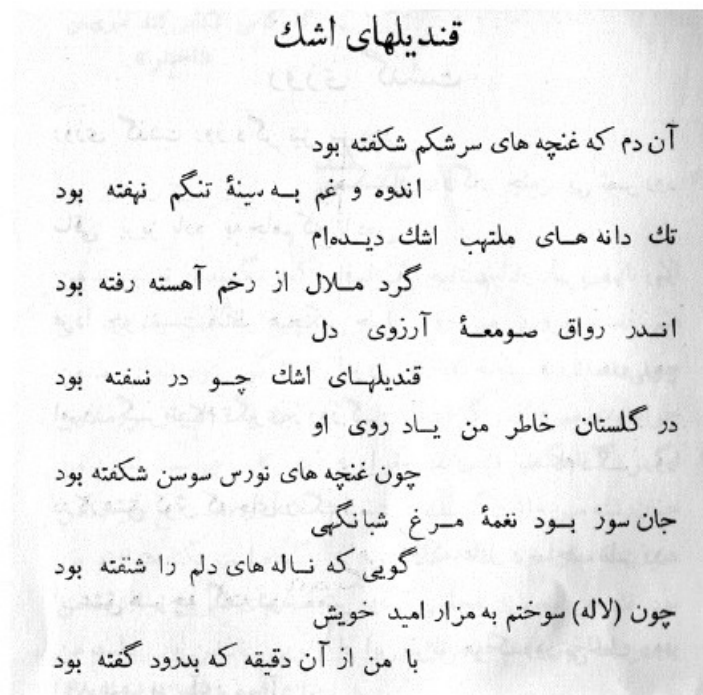 قندیلهای اشك
آن دم که غنچه های سرشکم شکفته بود
اندوه و غم به سینهٔ تنگم نهفته بود
تك دانه های ملتهب اشك دیده‌ام
گرد ملال از رخم آهسته رفته بود
اندر رواق صومعهٔ آرزوی دل
قندیلهای اشك چو در نسفته بود
در گلستان خاطر من یاد روی او
چون غنچه های نورس سوسن شکفته بود
جان سوز بود نغمهٔ مرغ شبانگهی
گویی که ناله های دلم را شنفته بود
چون (لاله) سوختم به مزار امید خویش
با من از آن دقیقه که بدرود گفته بود